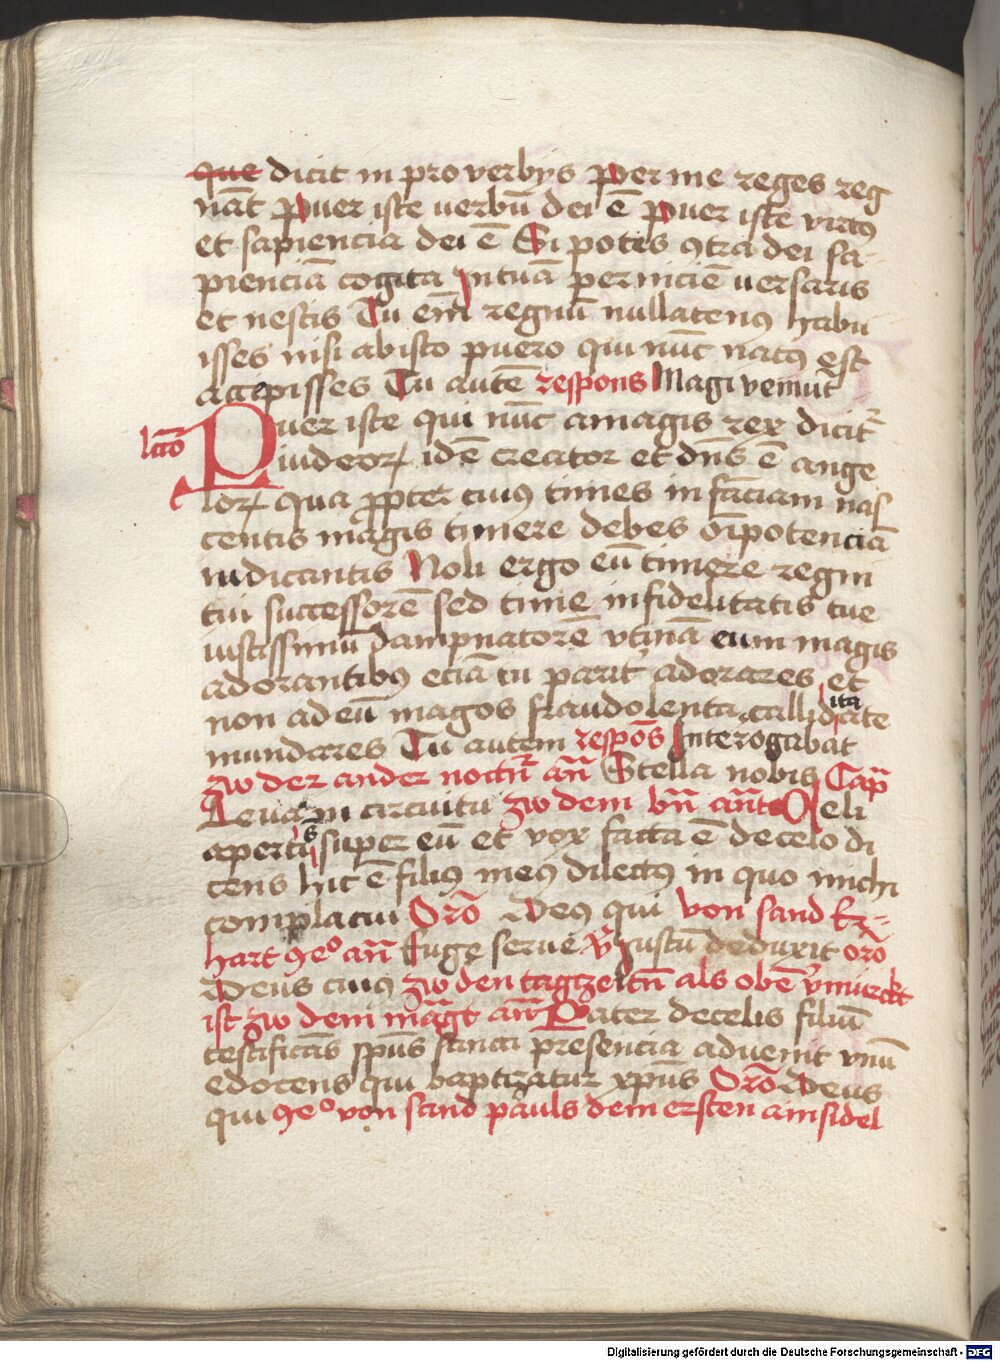 que dicit in proverbijs Per me reges reg
nāt Puer iste uerbū dei ē Puer iste virtꝰ
et sapiencia dei ē Si potes ꝯtra dei sa-
pienciā cogita In tuā perniciē uersaris
et nescis Tu em̄ regnū nullatenꝰ habu
isses nisi ab isto puero qui nūc natꝰ est
accepisses Tu autē respons Magi veniūt
lctō Puer iste qui nūc a magis rex dicit̄
iudeoꝝ idē creator et dn̄s ē ange
loꝝ qua ꝓpter cuiꝰ times infāciam nas
centis magis timere debes oīpotenciā
iudicantis Noli ergo eū timere regni
tui successorē sed time infidelitatis tue
iustissimū dampnatorē vtinā eum magis
adorantibꝰ eciā tu parit̄ adorares et
non ad eū magos fraudolenta callid ita te
mundares Tu autem respōs Interogabat
zw der ander noctn̄ an̄ Stella nobis Cap̄
Leua in circuitu zw dem bn̄ an̄t Celi
aperti s super eū et vox facta ē de celo di
cens hic ē filiꝰ meus dilectꝰ in quo michi
complacui Orō Deꝰ qui von sand Er-
hart ꝯeº an̄ Euge serue v̄ Iustū deduxit orō
Deus cuiꝰ zw den tagzeitn̄ als obē v̄mierckt
ist zw dem māgt an̄ Pater de celis filiū
testificās spūs sancti presencia aduenit vnū
edocens qui baptizatur xpūs Orō Deus
qui ꝯeº von sand pauls dem ersten ainsidel
Digitalisierung gefördert durch die Deutsche Forschungsgemeinschaft - DFG